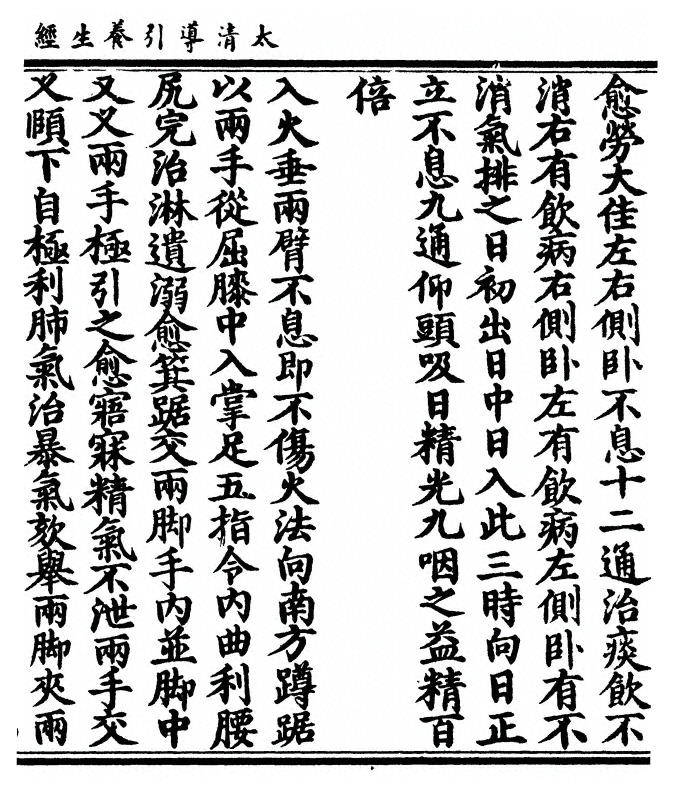 太清導引養生經
愈勞大佳左右側卧不息十二通治痰飲不
消右有飲病右側卧左有飲病左側卧有不
消氣排之日初出日中日入此三時向日正
立不息九通仰頭吸日精光九咽之益精百
倍
入火垂兩臂不息即不傷火法向南方蹲踞
以兩手從屈膝中入掌足五指令内曲利腰
尻完治淋遺溺愈箕踞交兩脚手内並脚中
又叉兩手極引之愈寤寐精氣不泄兩手交
叉頤下自極利肺氣治暴氣欬舉兩脚夾兩